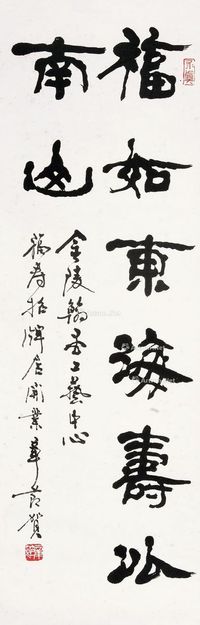 福如東海壽比
南山
金陵翰墨工藝中心
福寿招牌店開業 賀